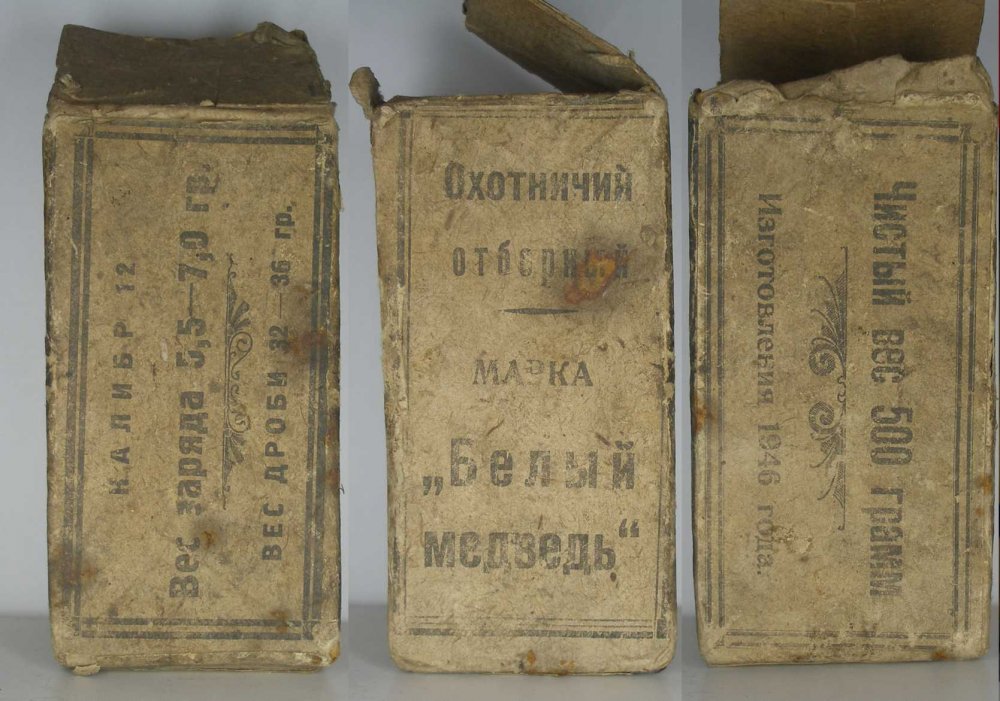 КАЛИБР 12
Вес заряда 5,5—7,0 гр.
ВЕС ДРОБИ 32—36 гр.
Охотничий
отборный
МАРКА
„Белый
медведь“
Чистый вес 500 грамм
Изготовления 1946 года.